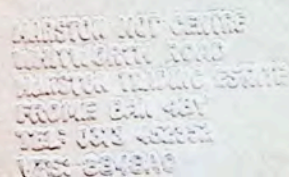 MARSTON MOT CENTRE
WHITWORTH ROAD
MARSTON TRADING ESTATE
FROME BA11 4BY
TEL: